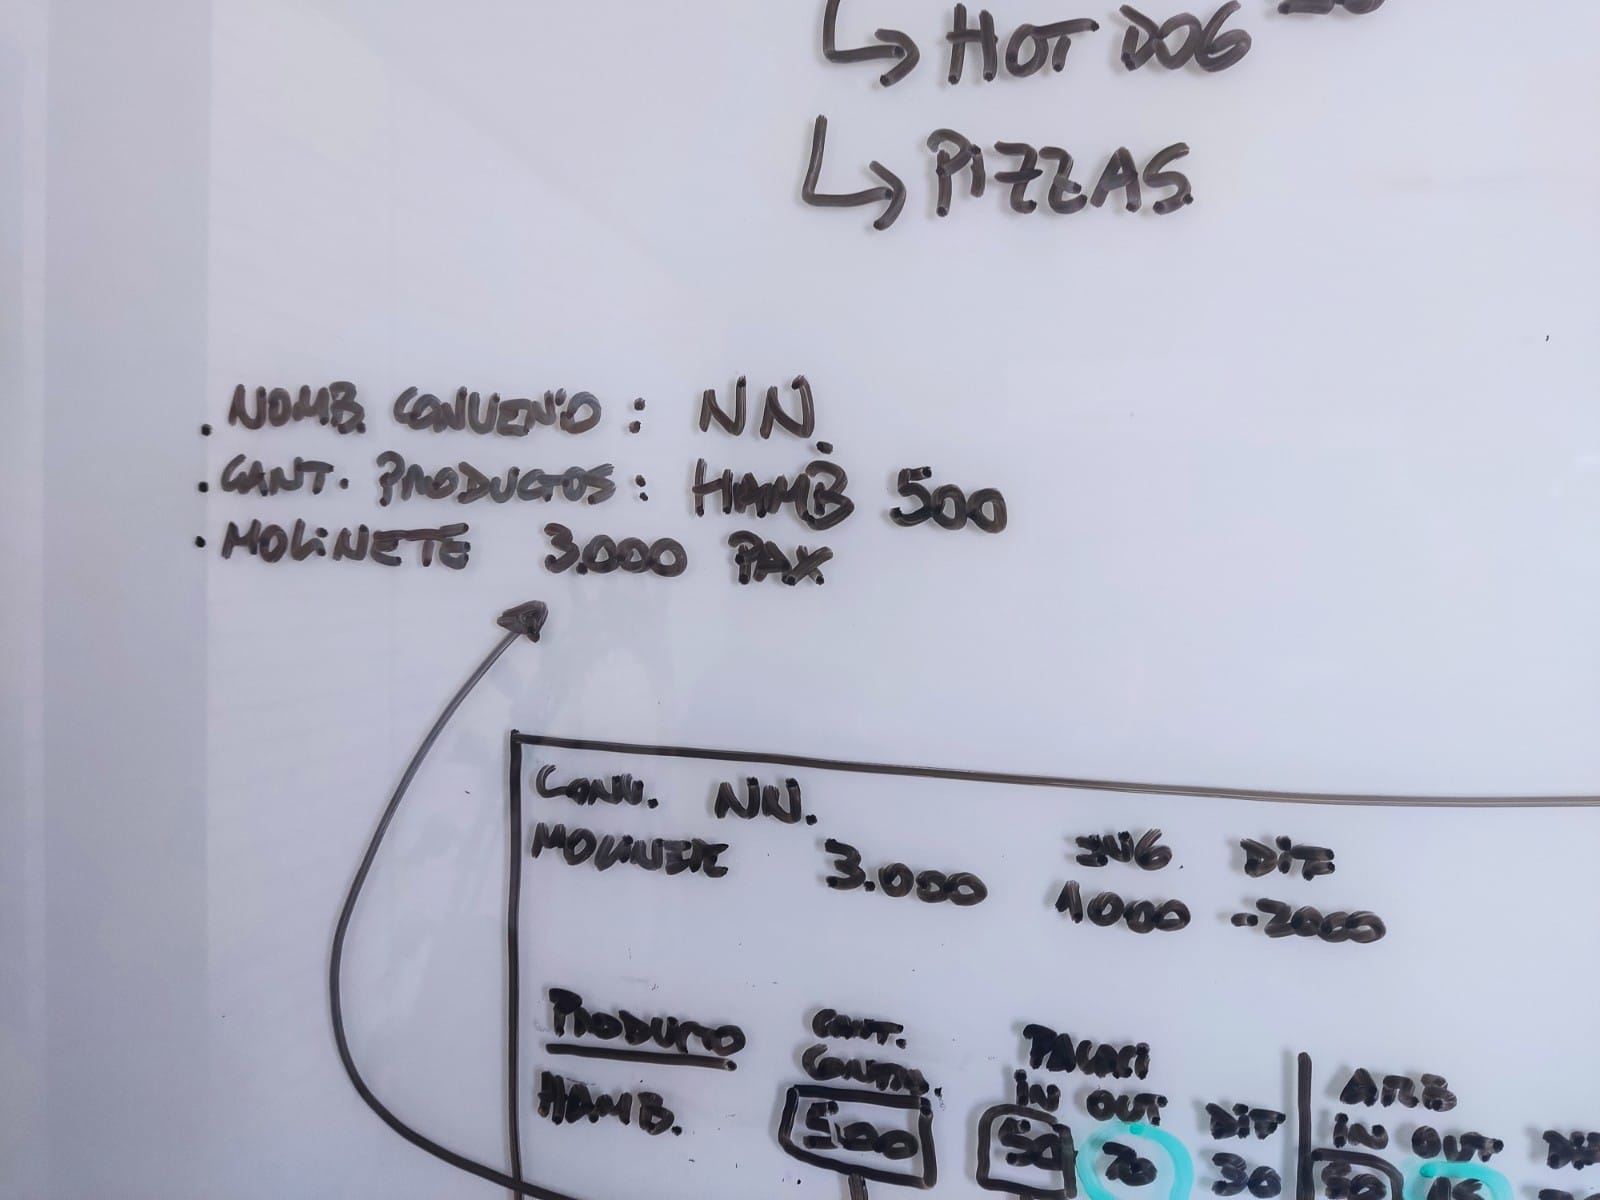 ↳ HOT DOG
↳ PIZZAS
. NOMB. CONVENIO : NN.
. CANT. PRODUCTOS : HAMB 500
. MOLINETE 3.000 PAX
CONV. NN.
MOLINETE 3.000 ING DIF
1000 -2000
PRODUCTO CANT. CONTR.
IN OUT DIF ARB IN OUT
HAMB. 500 50 20 30 15